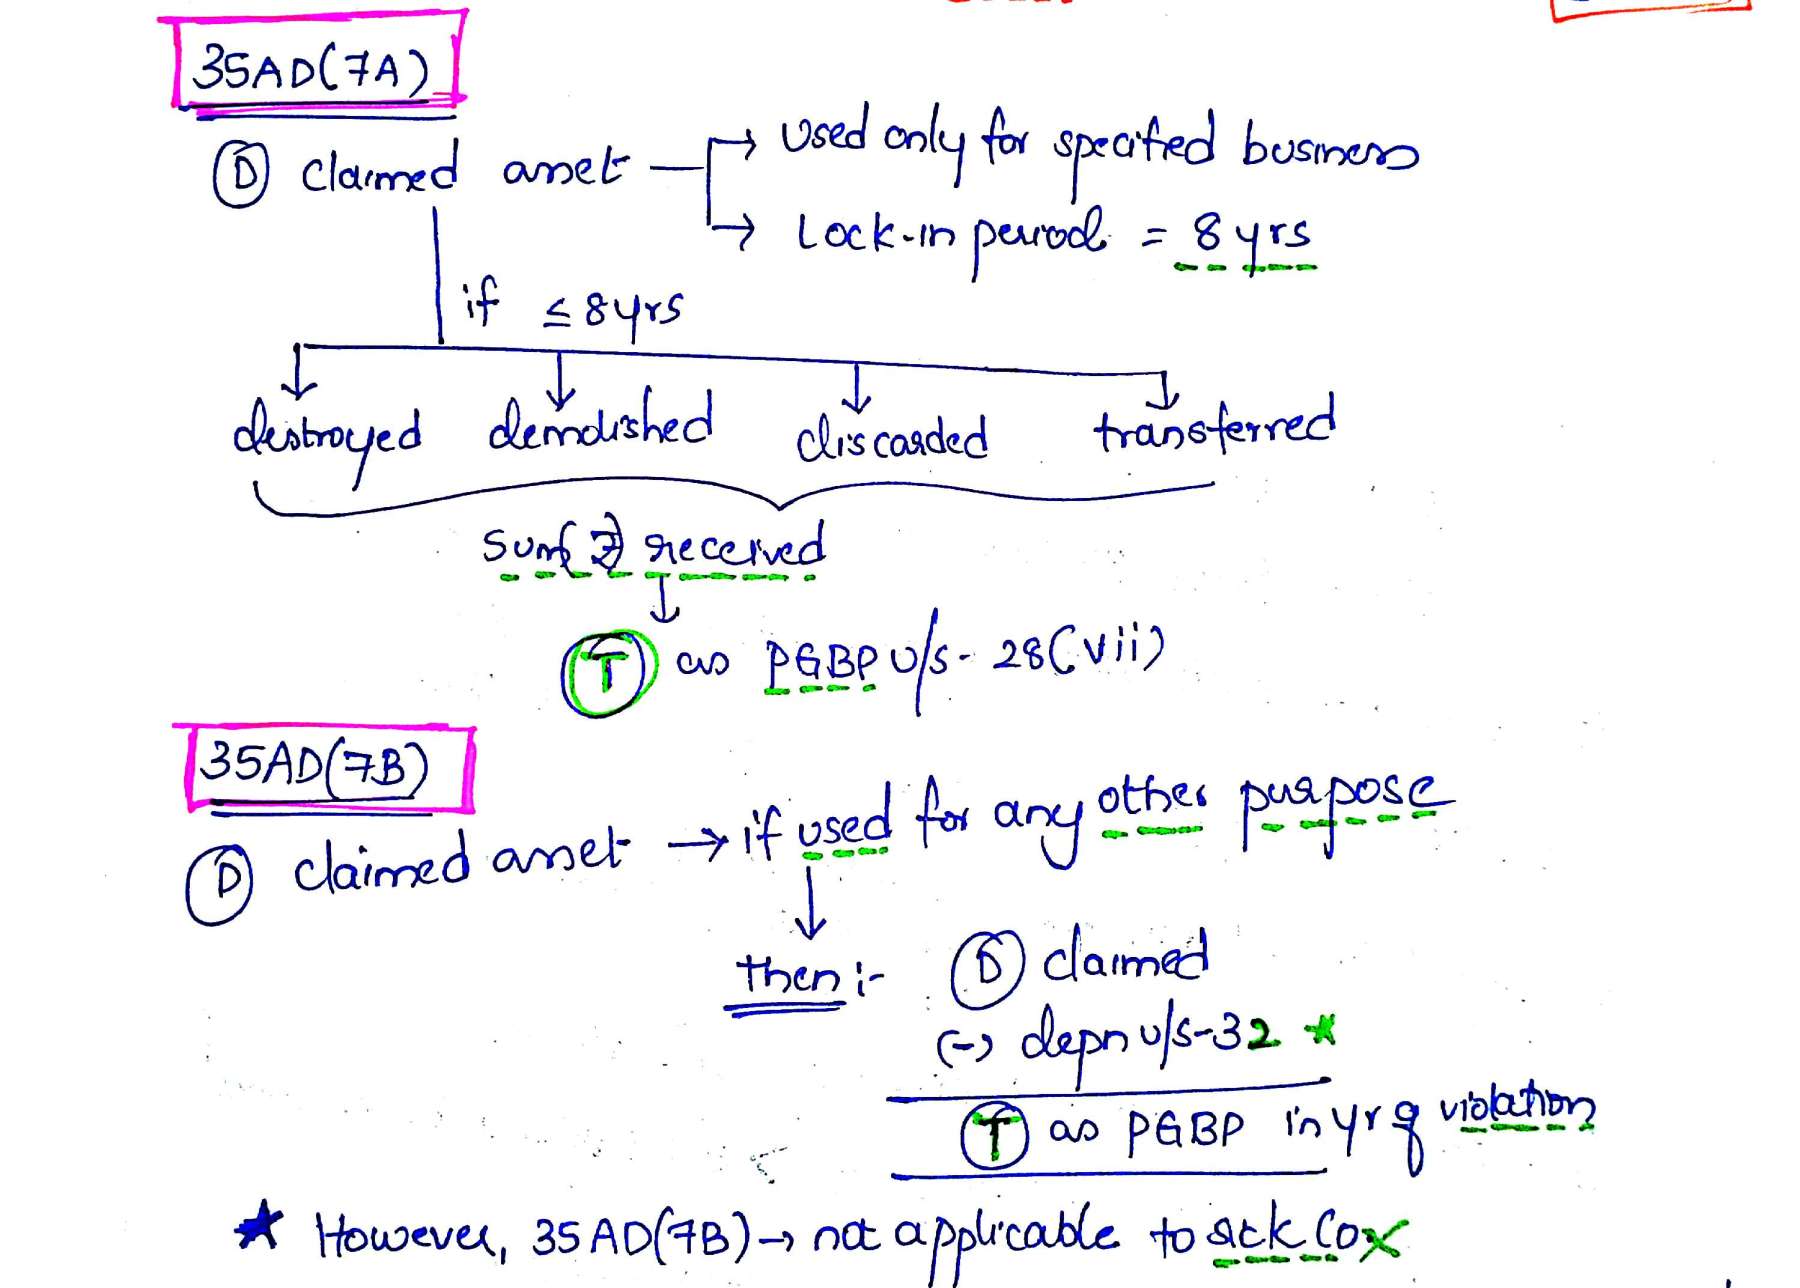 35AD(7A)
Ⓓ claimed asset → Used only for specified business
→ Lock-in period = 8 yrs
if ≤ 8 yrs
destroyed demolished discarded transferred
sum received
Ⓣ as PGBP u/s - 28(vii)
35AD(7B)
Ⓓ claimed asset → if used for any other purpose
then :- Ⓓ claimed
(-) depn u/s-32 ★
Ⓣ as PGBP in yr of violation
★ However, 35AD(7B) → not applicable to sick Co